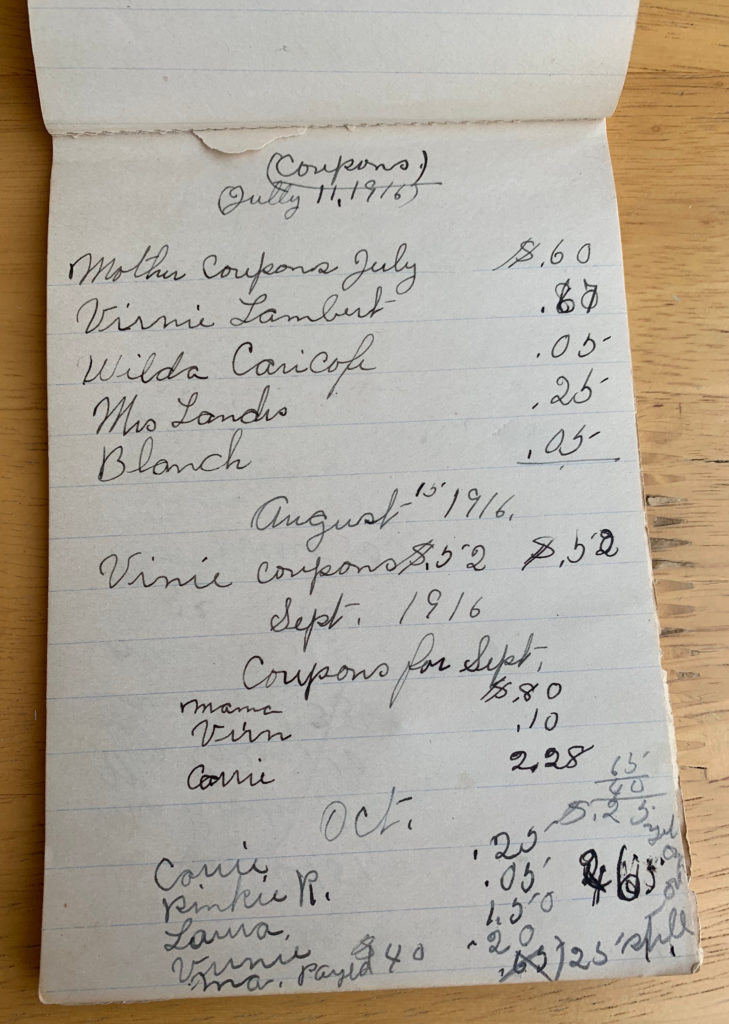 (Coupons.)
(Jully 11, 1916)
Mother Coupons July $.60
Virnie Lambert
Wilda Caricofe .05
Mrs Landis .25
Blanch .05
August 15 1916.
Vinie coupons $.52 $.52
Sept. 1916
Coupons for Sept.
mama $.80
Virn .10
Carrie 2.28
65
40
$.25
Oct.
Carrie .25
Pinkie R. .05
Laura. 1.50
Virnie .20
Ma. Payed $40 .65) 25 still